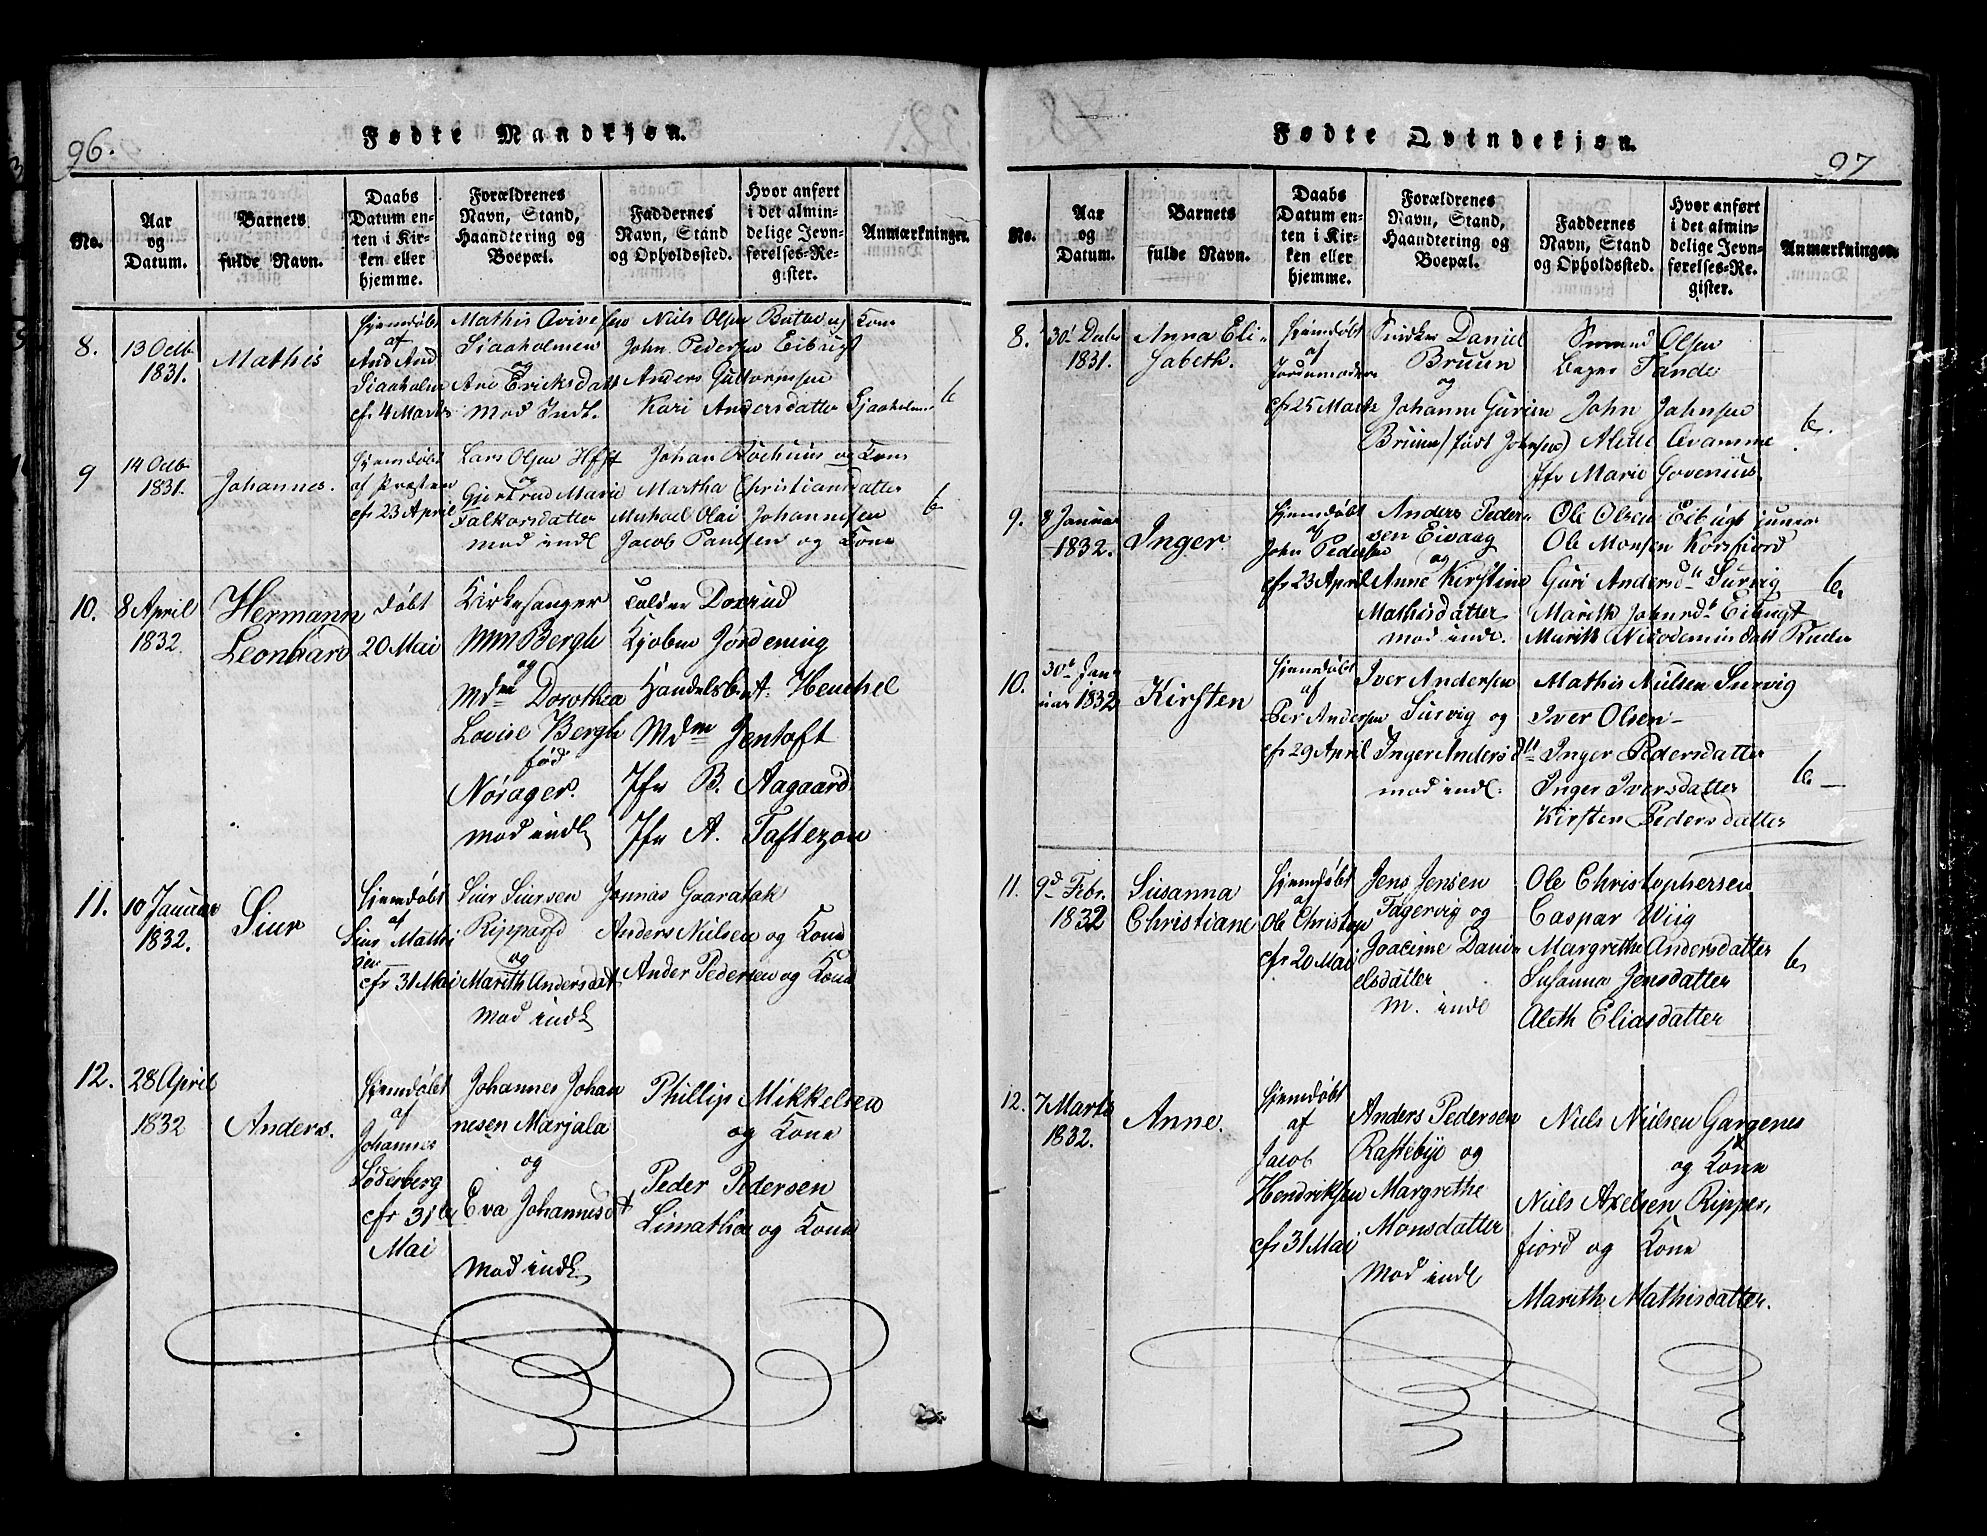 96.
Fødte Mandkjøn.
No.
Aar
og
Datum.
Barnets
fulde Navn.
Daabs
Datum en-
ten i Kir-
ken eller
hjemme.
Forældrenes
Navn, Stand,
Haandtering og
Boepæl.
Faddernes
Navn, Stand
og Opholdssted.
Hvor anført
i det almin-
delige Jevn-
førelses-Re-
gister.
Anmærkninger.
8.
13 Octb
1831.
Mathis
Hjemdøbt
af
And And
Siaaholm
cfr 4 Marts
Mathis
Siaaholmen
og
Ane Ericksdatt
mod Indl.
Niels Olsen og Kone
John Pedersen Eibugt
Anders Guttormsen
Kari Andersdatter Sjaaholm
6
9
14 Octb
1831.
Johannes.
Hjemdøbt
af Præsten
cfr 23 April
Lars Olsen Hfst
og
Gjertrud Marie
Falkorsdatter
mod indl
Johan Rochuus og Kone
Martha Christiansdatter
Michael Olai Johannesen
Jacob Paulsen og Kone
6
10.
8 April
1832.
Hermann
Leonhard
døbt
20 Mai
Kirkesanger
Bergh
og
Mdm Dorothea
Lovise Bergh
fød
Nørager.
mod indl
Tolder Doxrud
Kjøbm Jordening
Handelsbet. Henchel
Mdm Jentoft
Jfr B. Aagaard
Jfr A. Taftezon
11.
10 Januar
1832.
Siur
Hjemdøbt
af
Siur Mathi
sen
cfr 31 Mai
Siur Siursen
Ripparfd
og
Marith Andersdat
mod indl
Jonnas Gaaratak
Anders Nielsen og Kone
Ander Pedersen og Kone
12.
28 April
1832
Anders.
Hjemdøbt
af
Johannes
Søderberg
cfr 31te
Mai
Johannes Johan
nesen Marjala
og
Eva Johannesdt
mod indl.
Phillip Mikkelsen
og Kone
Peder Pedersen
Limatha og Kone
97
Fødte Qvindekjøn.
No.
Aar
og
Datum.
Barnets
fulde Navn.
Daabs
Datum en-
ten i Kir-
ken eller
hjemme.
Forældrenes
Navn, Stand,
Haandtering og
Boepæl.
Faddernes
Navn, Stand
og Opholdssted.
Hvor anført
i det almin-
delige Jevn-
førelses-Re-
gister.
Anmærkninger.
8.
30t Decbr
1831.
Anna Eli-
sabeth.
Hjemdøbt
af
Jordemoderen
cfr 25 Marts
Snidker Daniel
Bruun
og
Johanne Gurine
Bruun (født Johnsen)
Olsen
Bager Fande
John Johnsen
Aletie Avamme
Jfr Marie Govenius
6.
9.
8 Januar
1832.
Inger
Hjemdøbt
af
John Pedersen
cfr 23 April
Anders Peder-
sen Eivaag
og
Anne Kirstine
Mathisdatter
mod indl.
Ole Olsen Eibugt junior
Ole Monsen Korsfiord
Guri Andersdtr Survig
Marith Johnsdt Eibugt
Marith Nicodemisdatt
6
10.
30t Jan-
uar 1832
Kirsten
Hjemdøbt
af
Per Andersen
cfr 29 April
Iver Andersen
Survig og
Inger Andersdtt
mod indl.
Mathis Nielsen Survig
Iver Olsen -
Inger Pedersdatter
Inger Iversdatter
Kirsten Pedersdatter
6 -
11.
9d Febr.
1832
Susanna
Christiane
Hjemdøbt
af
Ole Christop
cfr 20 Mai
Jens Jensen
Fagervig og
Joacime Dani-
elsdatter
m. indl
Ole Christophersen
Caspar Wiig
Margrethe Andersdatter
Susanna Jensdatter
Aleth Eliasdatter
6
12.
7 Marts
1832.
Anne.
Hjemdøbt
af
Jacob
Hendriksen
cfr 31 Mai
Anders Pedersen
Rastebye og
Margrethe
Monsdatter
mod indl
Niels Nielsen Gargenes
og Kone
Niels Axelsen Ripper,
fiord og Kone
Marith Mathisdatter.